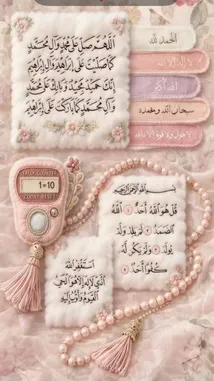 اللّٰهُمَّ صَلِّ عَلَى مُحَمَّدٍ وَآلِ مُحَمَّدٍ
كَمَا صَلَّيْتَ عَلَى إِبْرَاهِيمَ وَآلِ إِبْرَاهِيمَ
إِنَّكَ حَمِيدٌ مَجِيدٌ وَبَارِكْ عَلَى مُحَمَّدٍ
وَآلِ مُحَمَّدٍ كَمَا بَارَكْتَ عَلَى إِبْرَاهِيمَ
الحمد لله
لا إله إلا الله
الله أكبر
سبحان الله وبحمده
لا حول ولا قوة إلا بالله
TALLY COUNTER
1=10
COUNT RESET
بسم الله الرحمن الرحيم
قُلْ هُوَ اللَّهُ أَحَدٌ ۝ اللَّهُ
الصَّمَدُ ۝ لَمْ يَلِدْ وَلَمْ
يُولَدْ ۝ وَلَمْ يَكُنْ لَهُ
كُفُوًا أَحَدٌ ۝
أَسْتَغْفِرُ اللهَ
الَّذِي لَا إِلٰهَ إِلَّا هُوَ الْحَيُّ
الْقَيُّومُ وَأَتُوبُ إِلَيْهِ